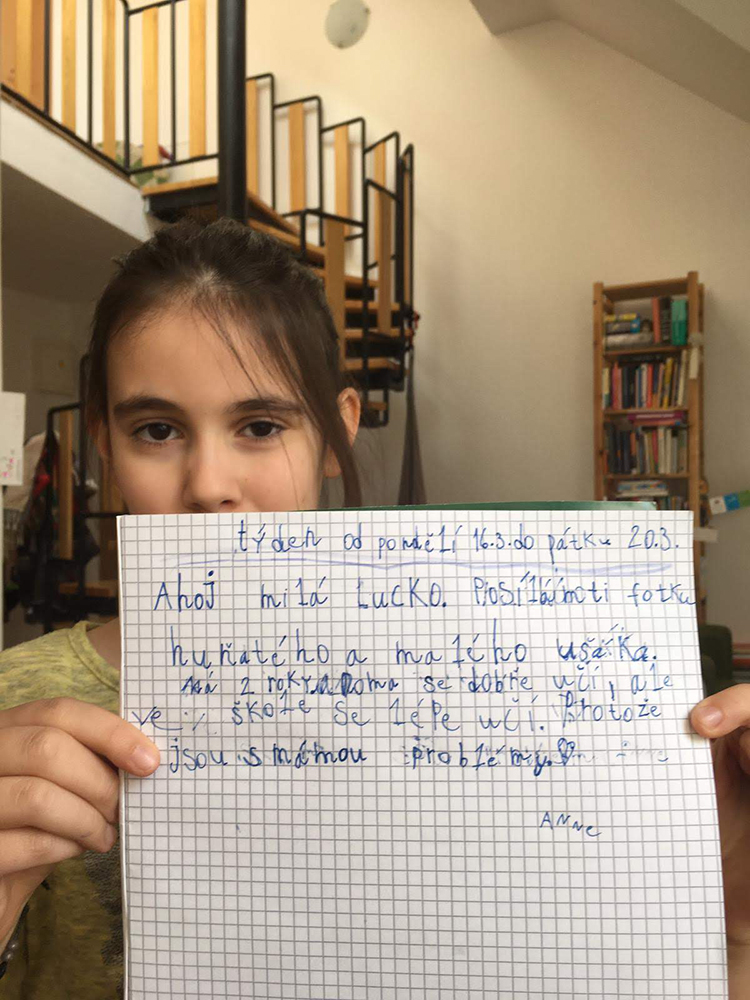 týden od pondělí 16.3. do pátku 20.3.
Ahoj milá Lucko. Posílám ti fotku
huňatého a malého ušáka.
Má 2 roky a Doma se dobře učí, ale
ve škole se lépe učí. Protože
jsou s mámou problémy.
ANNe